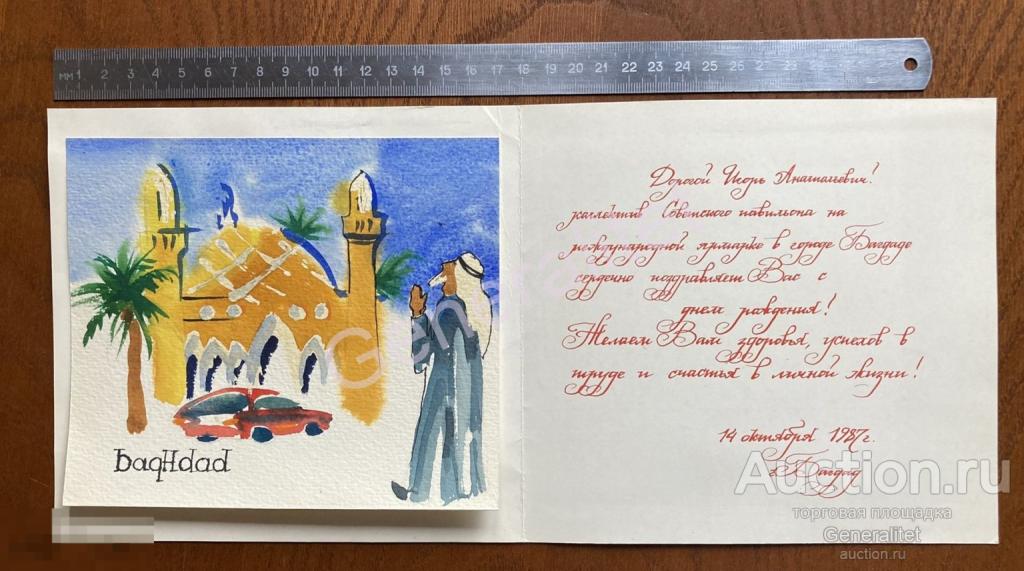 мм 1 2 3 4 5 6 7 8 9 10 11 12 13 14 15 16 17 18 19 20 21 22 23 24 25 26 27 28
Baghdad
Дорогой Игорь Анатольевич!
коллектив Советского павильона на
международной ярмарке в городе Багдаде
сердечно поздравляет Вас с
днем рождения!
Желаем Вам здоровья, успехов в
труде и счастья в личной жизни!
14 октября 1987 г.
г. Багдад
Auction.ru
торговая площадка
Generalitet
auction.ru